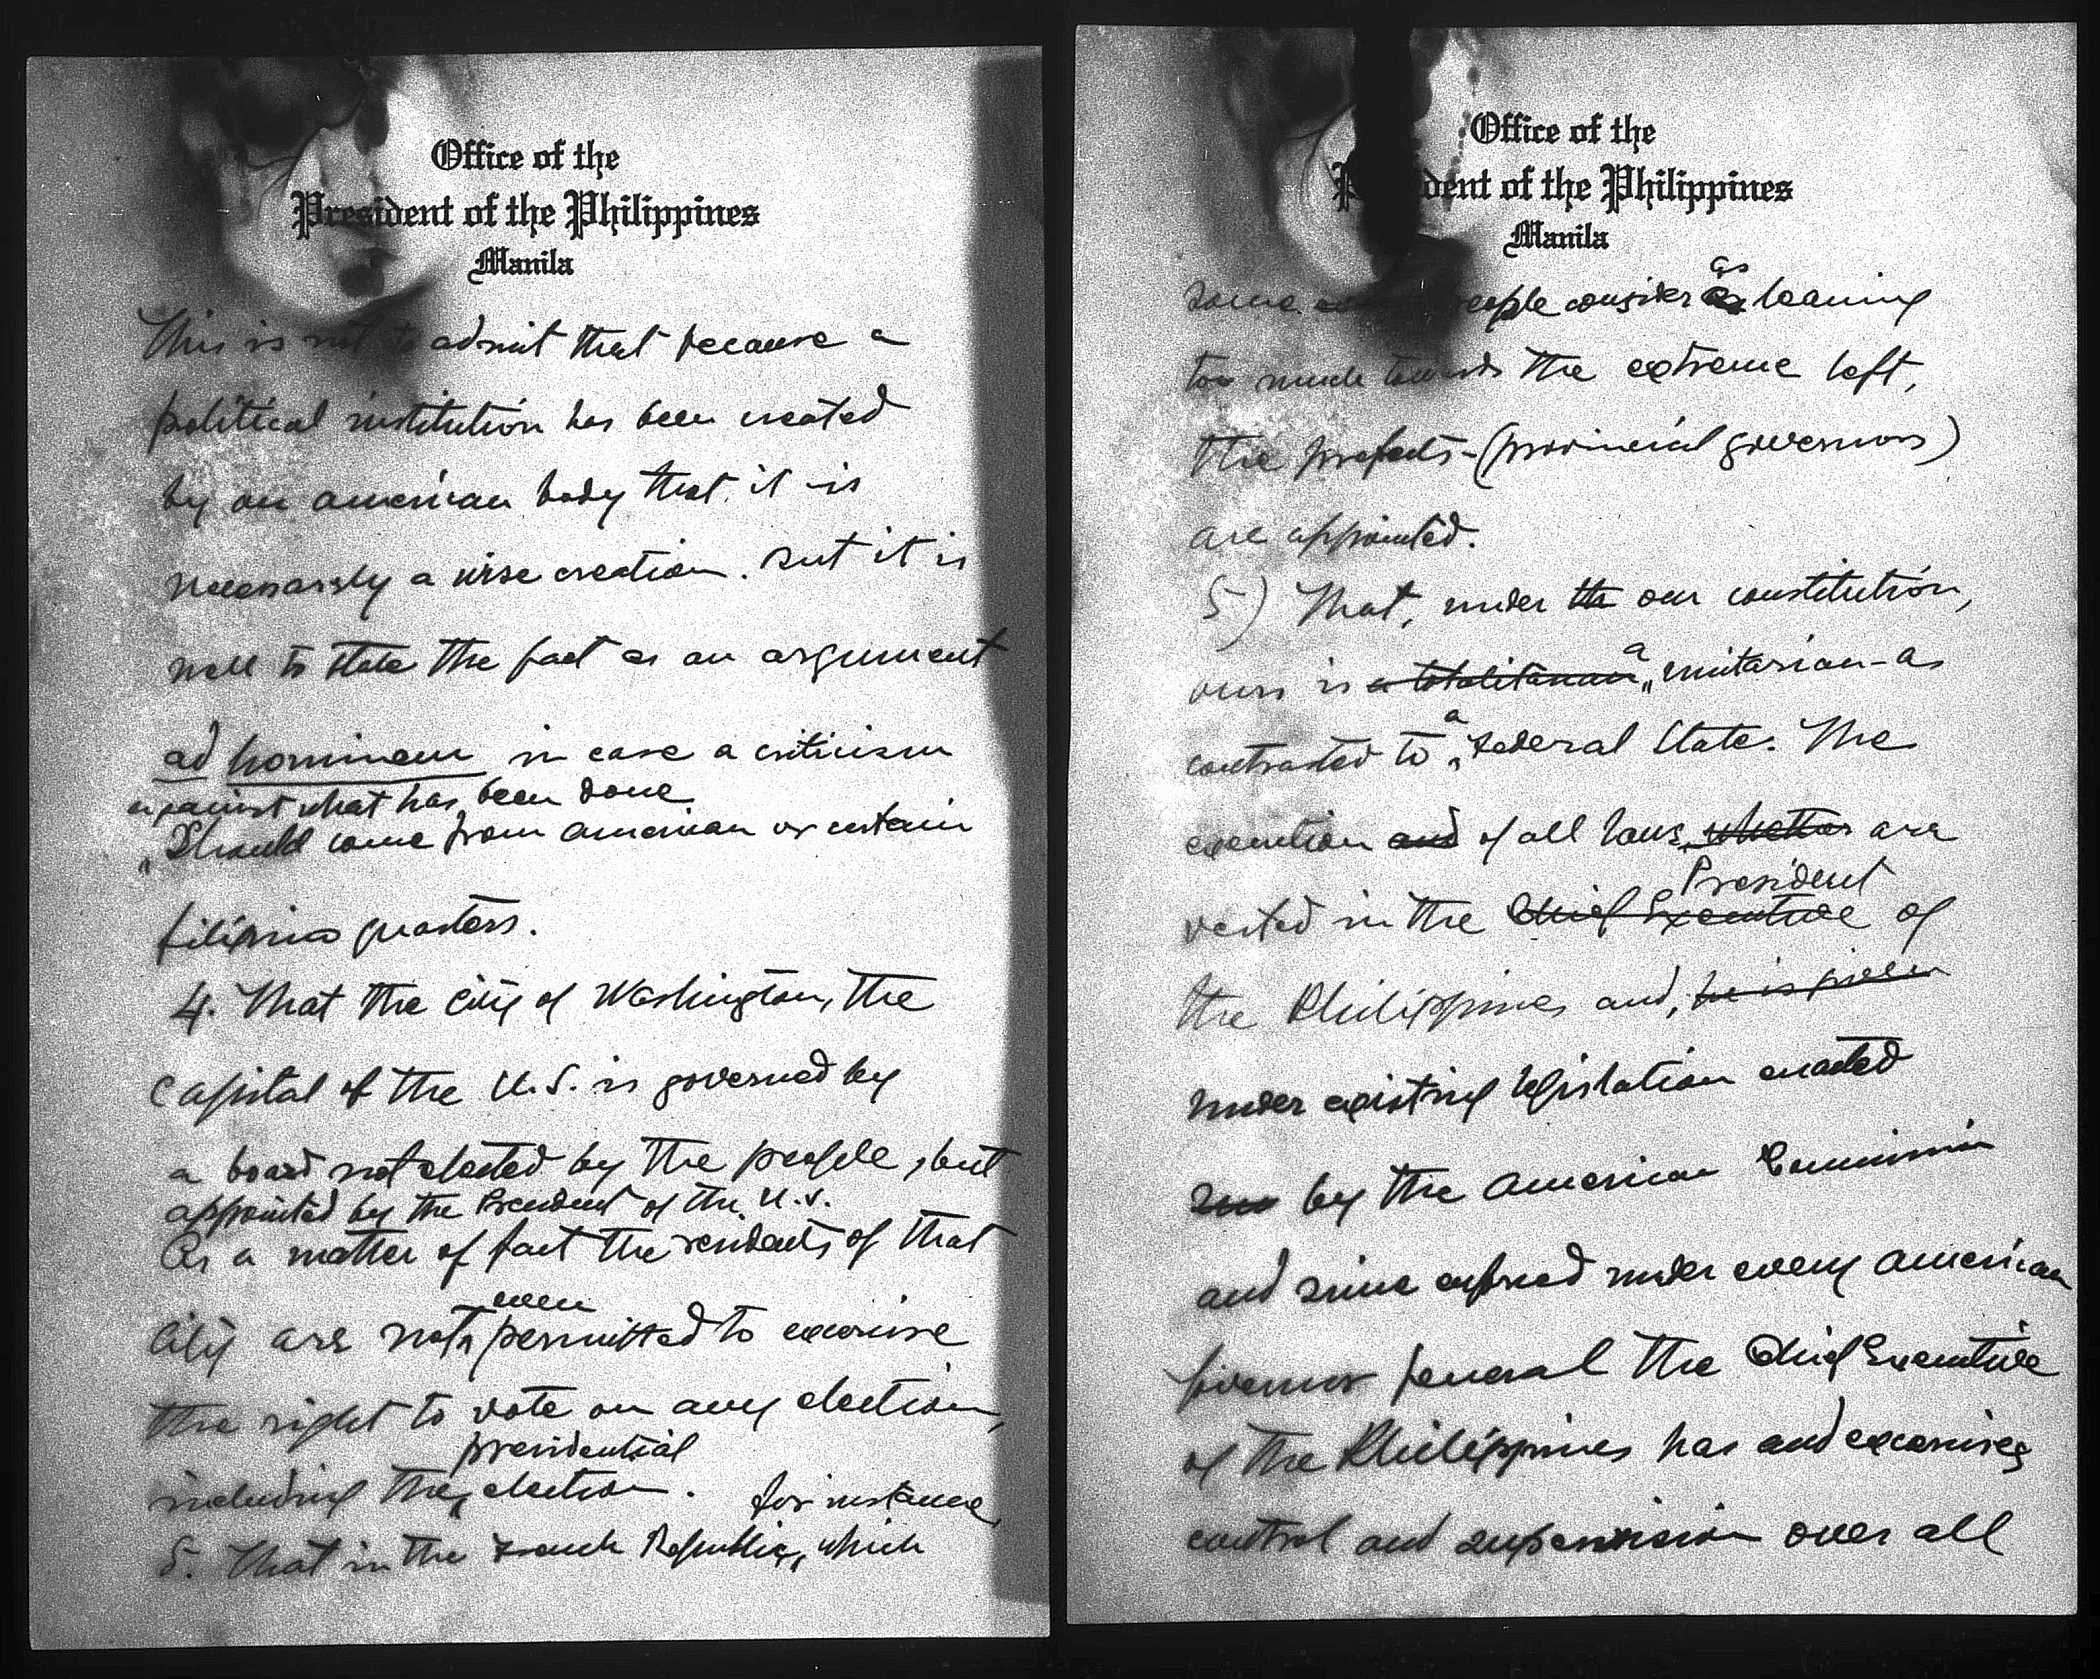 Office of the
President of the Philippines
Manila
This is not to admit that because a
political institution has been created
by an american body that it is
necessarily a wise creation. But it is
well to state the fact as an argument
ad hominem in case a criticism
against what has been done
should come from american or certain
filipino quarters.
4. That the city of Washington, the
capital of the U.S. is governed by
a board not elected by the people, but
appointed by the President of the U.S.
As a matter of fact the residents of that
city are not permitted to exercise
even
the right to vote on any election,
presidential
including the election. for instance,
5. That in the French Republic, which
Office of the
dent of the Philippines
Manila
as
some people consider leaning
too much towards the extreme left,
the prefects - (provincial governors)
are appointed.
5) That, under the our constitution,
ours is a totalitarian a unitarian - as
contrasted to a Federal State. The
execution and of all laws whether are
President
vested in the Chief Executive of
the Philippines and, he is given
under existing legislation enacted
by the American Commission
and since enforced under every American
Governor General the Chief Executive
of the Philippines has and exercises
control and supervision over all